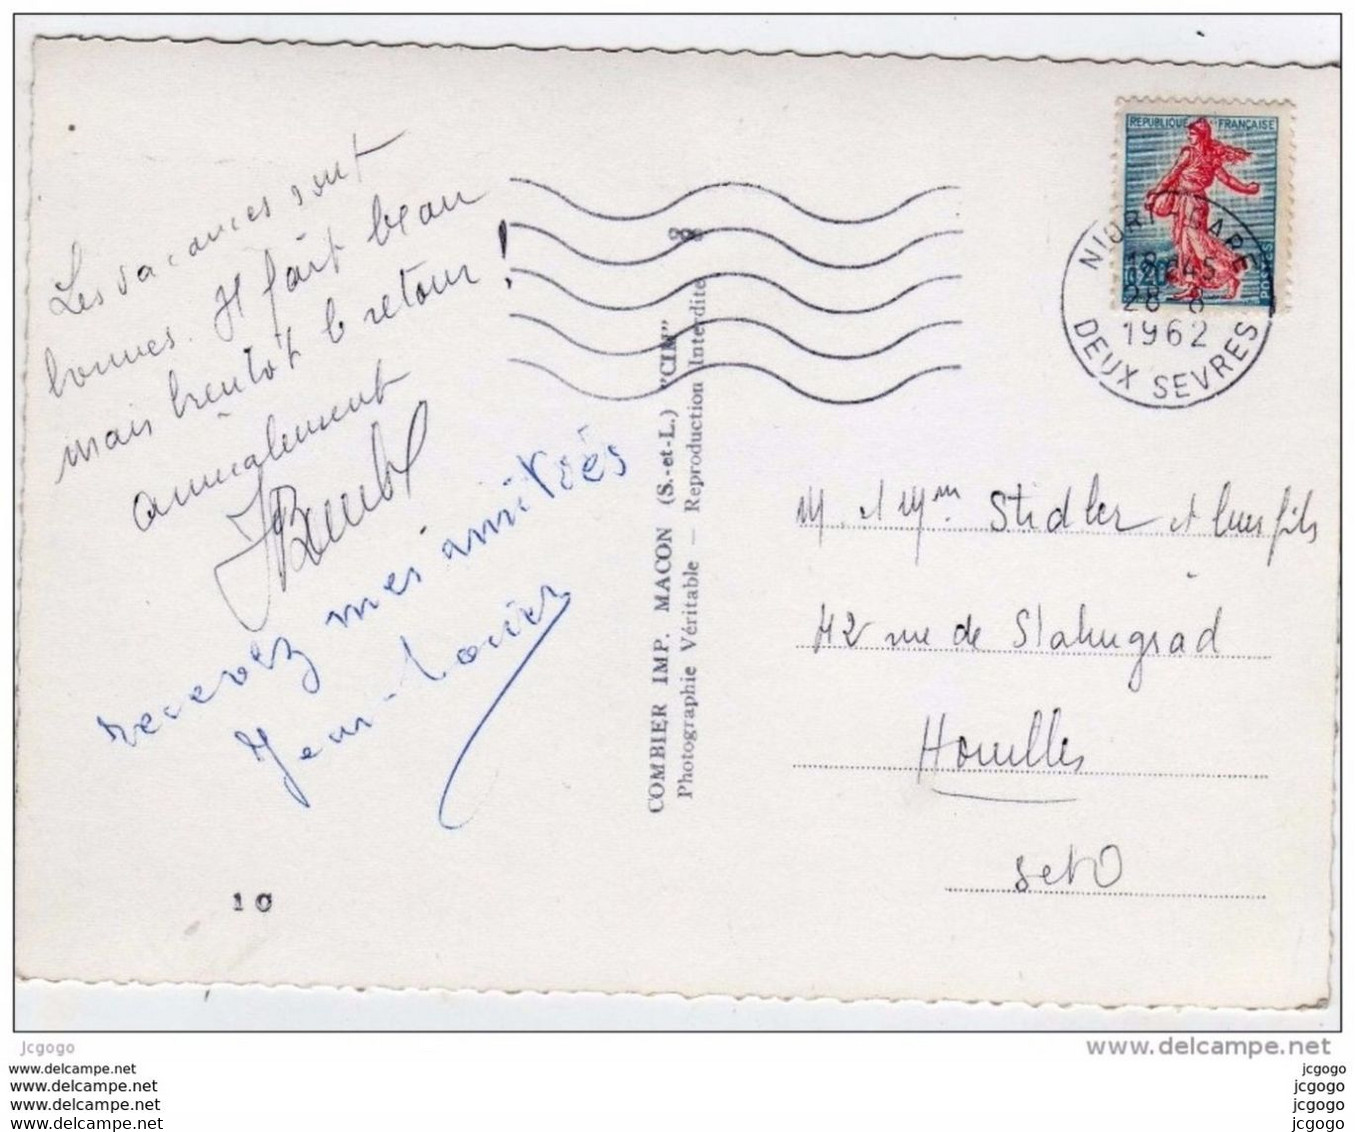 Les vacances sont
bonnes. Il fait beau
mais bientôt le retour !
amicalement
recevez mes amitiés
Jean-Louis
1 C
COMBIER IMP. MACON (S.-et-L.) "CIM"
Photographie Véritable — Reproduction Interdite
REPUBLIQUE FRANÇAISE
0,20
POSTES
NIORT GARE
28-8
1962
DEUX SEVRES
M. et Mme Stidler et leurs fils
42 rue de Stalingrad
Houilles
S et O
www.delcampe.net
jcgogo
www.delcampe.net
www.delcampe.net
www.delcampe.net
www.delcampe.net
jcgogo
jcgogo
jcgogo
jcgogo